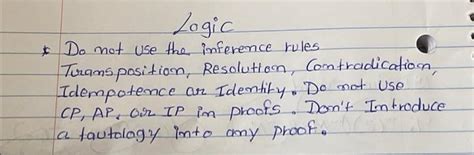 Logic
* Do not use the inference rules
Transposition, Resolution, Contradiction,
Idempotence or Identity. Do not use
CP, AP, or IP in proofs. Don't Introduce
a tautology into any proof.